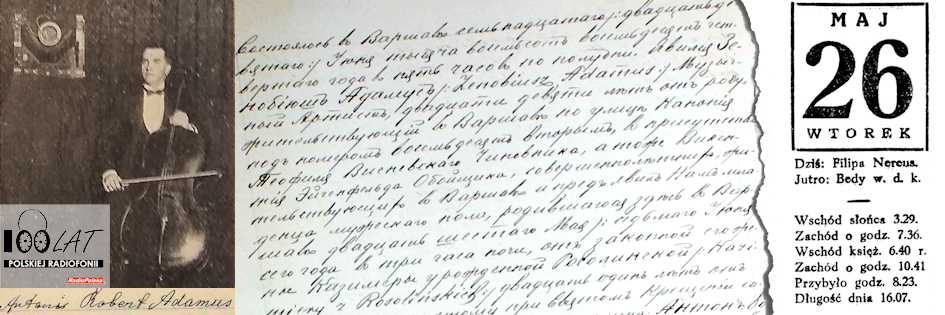 100 LAT
POLSKIEJ RADIOFONII
RadioPolska
Antoni Robert Adamus
Состоялось въ Варшавѣ семьнадцатаго /: двадцать де-
вятаго :/ Іюня тысяча восемьсотъ восемьдесятъ чет-
вертаго года въ пять часовъ по полудни. Явился Зе-
нобіюшъ Адамусъ /: Zenobiusz Adamus :/ Музыч-
ной Артистъ, двадцати девяти лѣтъ отъ роду,
жительствующій въ Варшавѣ по улицѣ Канонія
подъ номеромъ восемьдесятъ вторымъ, въ присутствіи
Теофиля Чиновника, а тоже Викен-
тія Обойщика, совершеннолѣтнихъ, жи-
тельствующихъ въ Варшавѣ и предъявилъ Намъ мла-
денца мужескаго пола, родившагося здѣсь въ Вар-
шавѣ двадцать шестаго Мая /: седьмаго Іюня
сего года въ три часа ночи, отъ законной его же-
ны Казимеры урожденной Роболинской /: Kazi-
miery z Robolińskich :/ двадцать одинъ лѣтъ отъ
при святомъ Крещеніи
Антонъ
MAJ
26
WTOREK
Dziś: Filipa Nereusa.
Jutro: Bedy w. d. k.
Wschód słońca 3.29.
Zachód o godz. 7.36.
Wschód księż. 6.40 r.
Zachód o godz. 10.41
Przybyło godz. 8.23.
Długość dnia 16.07.